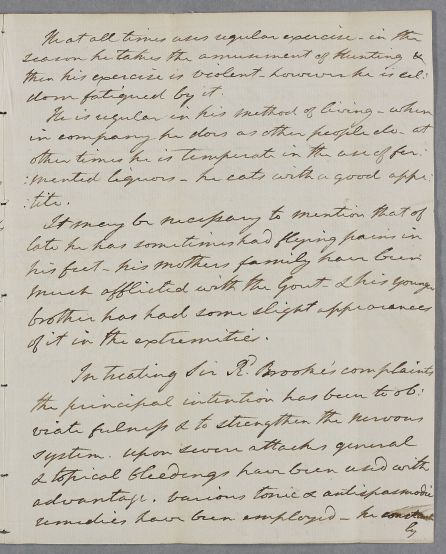 He at all times uses regular exercise - in the
season he takes the amusement of Hunting &
then his exercise is violent - however he is sel:
dom fatigued by it.
He is regular in his method of living - when
in company he does as other people do - at
other times he is temperate in the use of fer:
:mented liquors - he eats with a good appe:
:tite.
It may be necessary to mention that of
late he has sometimes had flying pains in
his feet - his mothers family have been
much afflicted with the Gout - & his younger
brother has had some slight appearances
of it in the extremities.
In treating Sir Rd. Brooke's complaints
the principal intention has been to ob:
viate fulness & to strengthen the nervous
system. upon severe attacks general
& topical bleedings have been used with
advantage. various tonic & antispasmodic
remedies have been employed - he constant
ly